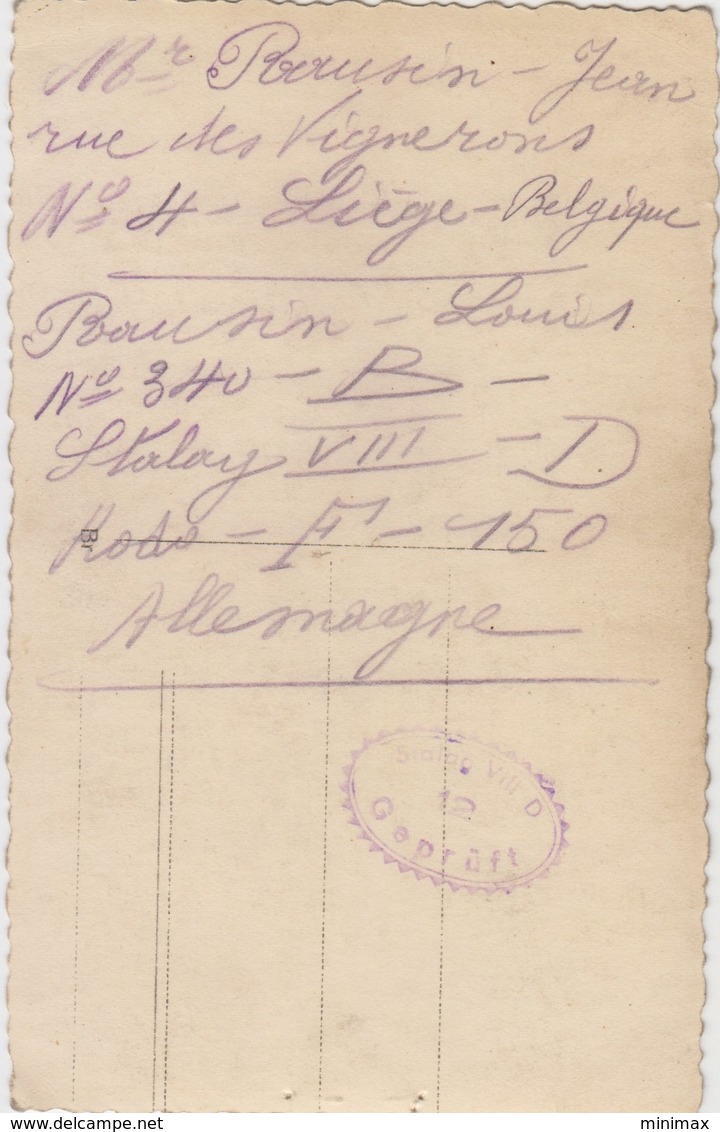 Mr Rausin - Jean
rue des Vignerons
No 4 - Liège - Belgique
Rausin - Louis
No 340 - B -
Stalag VIII - D
Kodo - F - 150
Br
Allemagne
Stalag VIII D
12
Geprüft
delcampe.net
minimax